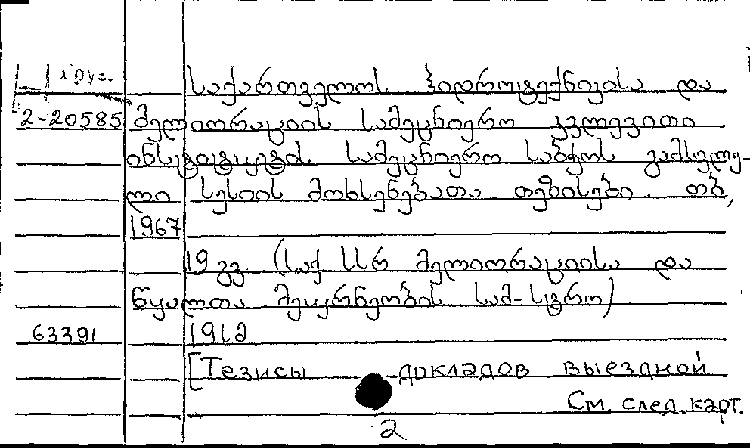 საქართველოს ჰიდროტექნიკისა და
2-20585 მელიორაციის სამეცნიერო კვლევითი
ინსტიტუტის სამეცნიერო საბჭოს გამსვლე-
ლი სესიის მოხსენებათა თეზისები. თბ,
1967
19 გვ. (საქ სსრ მელიორაციისა და
წყალთა მეურნეობის სამ-სტრო)
63391
[Тезисы докладов выездной
См. след. карт.
2